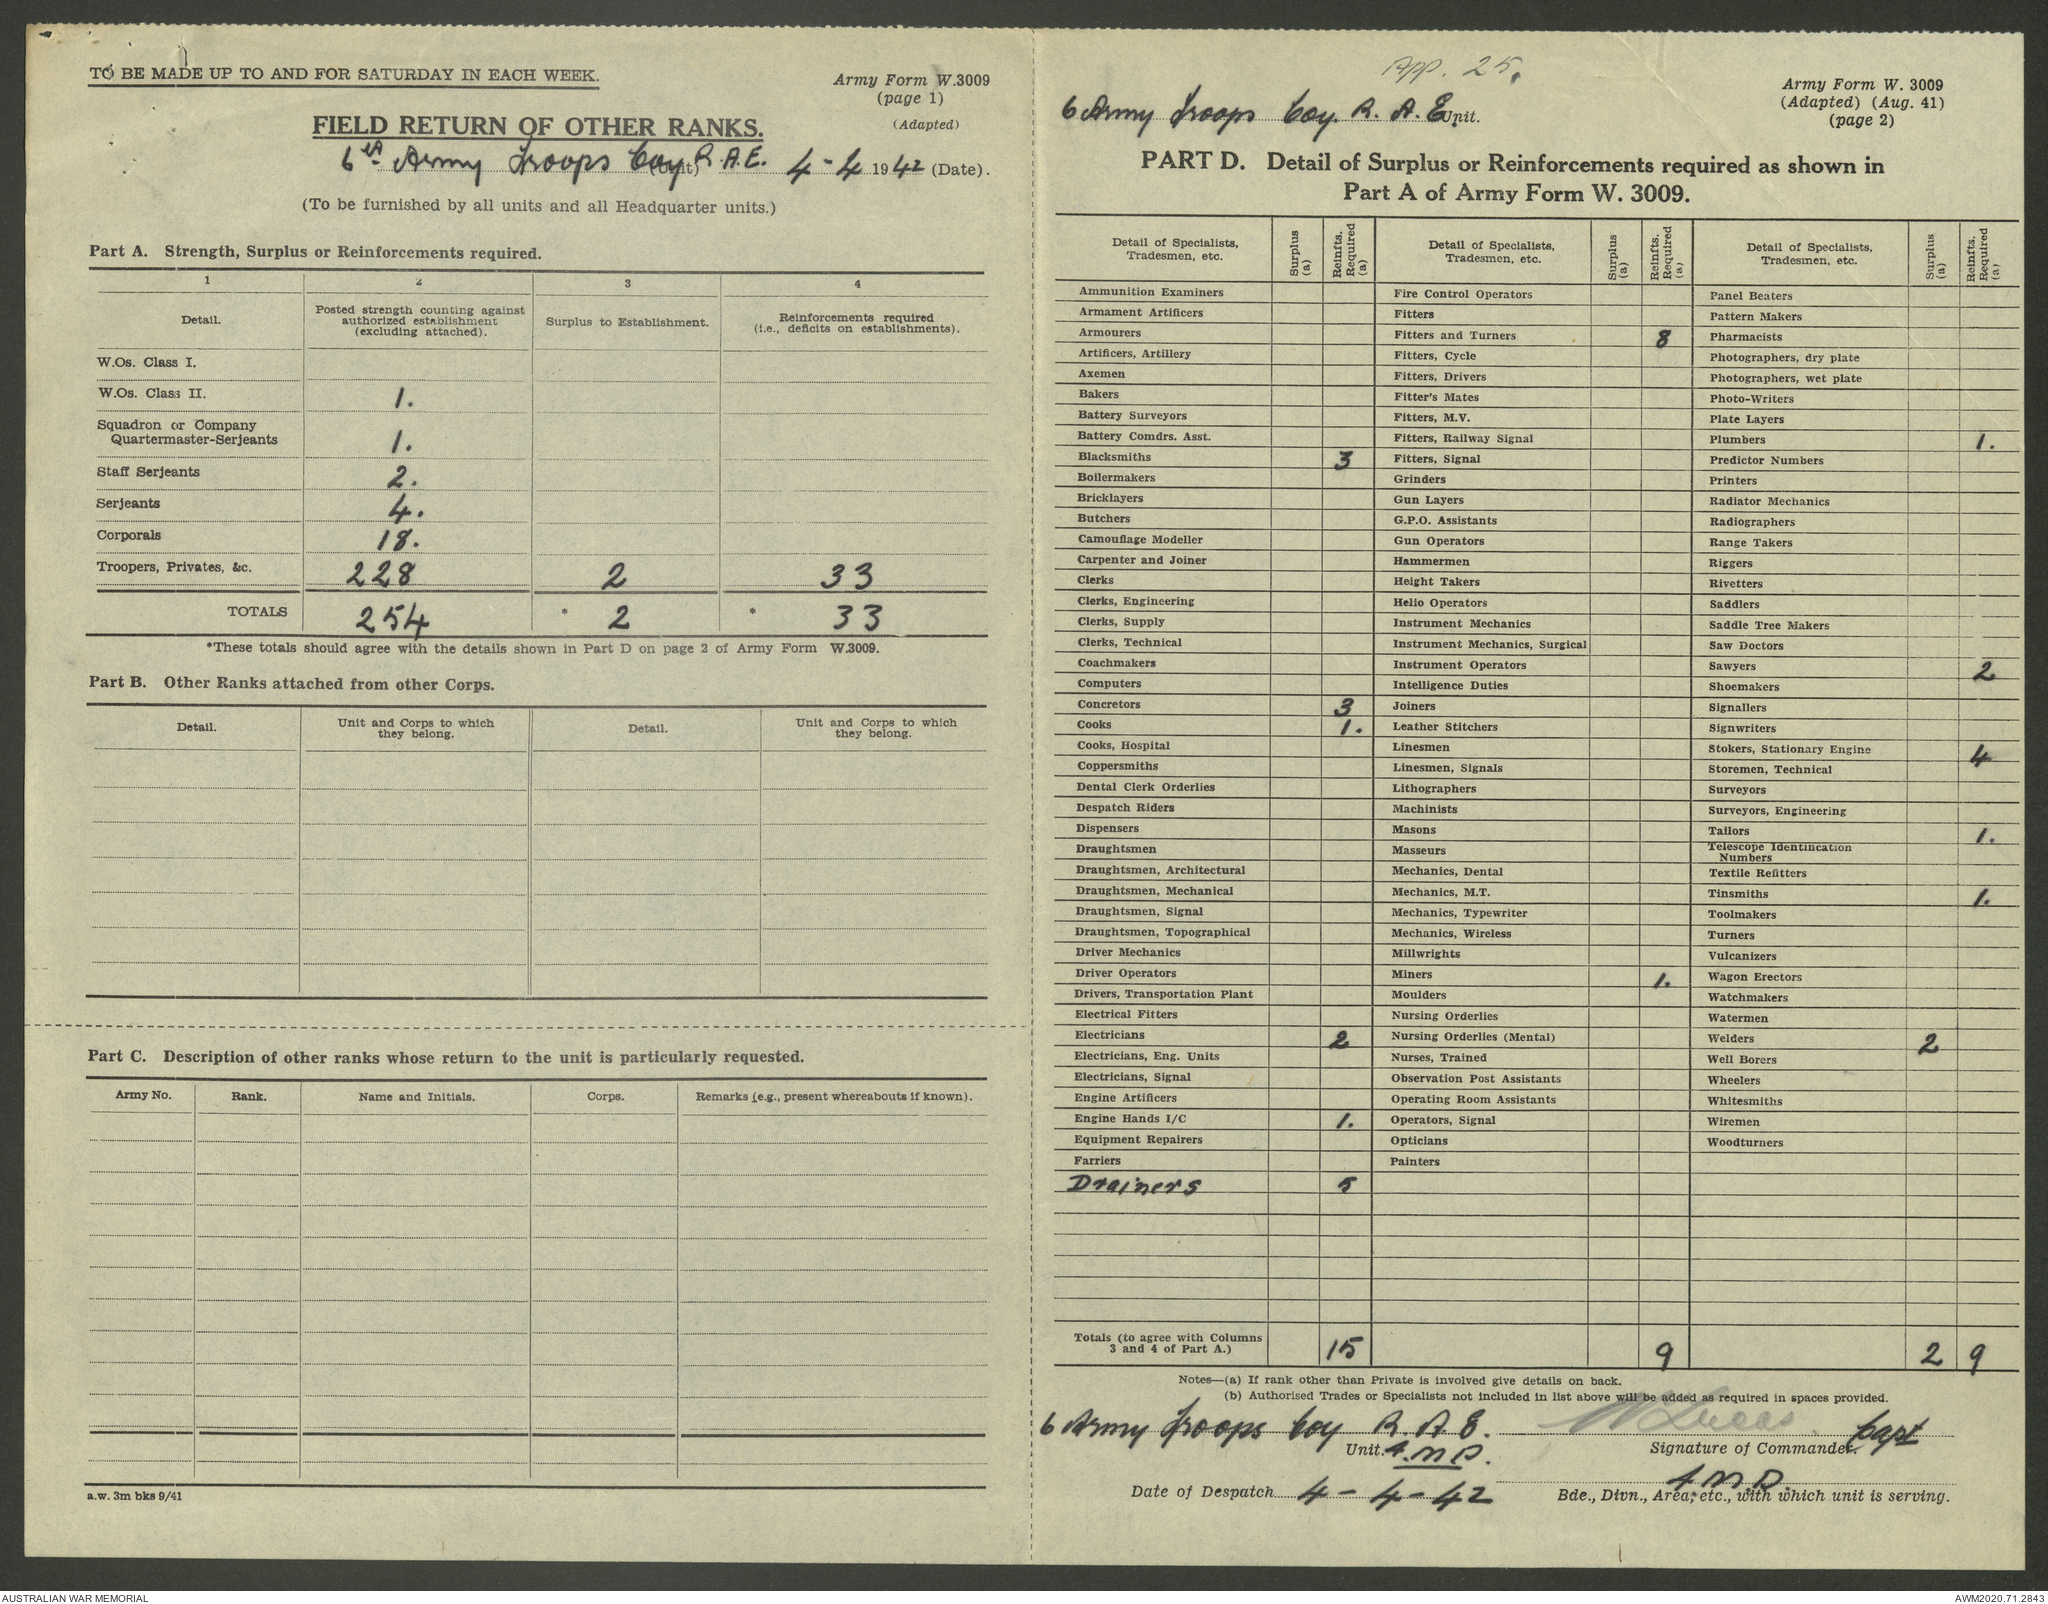 TO BE MADE UP TO AND FOR SATURDAY IN EACH WEEK.
Army Form W.3009
(page 1)
(Adapted)
FIELD RETURN OF OTHER RANKS.
6th Army Troops Coy R.A.E. (Unit) 4-4 1942 (Date).
(To be furnished by all units and all Headquarter units.)
Part A. Strength, Surplus or Reinforcements required.
1 2 3 4
Detail. Posted strength counting against authorized establishment (excluding attached). Surplus to Establishment. Reinforcements required (i.e., deficits on establishments).
W.Os. Class I.
W.Os. Class II. 1.
Squadron or Company
Quartermaster-Serjeants 1.
Staff Serjeants 2.
Serjeants 4.
Corporals 18.
Troopers, Privates, &c. 228 2 33
TOTALS 254 * 2 * 33
*These totals should agree with the details shown in Part D on page 2 of Army Form W.3009.
Part B. Other Ranks attached from other Corps.
Detail. Unit and Corps to which they belong. Detail. Unit and Corps to which they belong.
Part C. Description of other ranks whose return to the unit is particularly requested.
Army No. Rank. Name and Initials. Corps. Remarks (e.g., present whereabouts if known).
a.w. 3m bks 9/41
App. 25.
6 Army Troops Coy. R.A.E. Unit.
Army Form W. 3009
(Adapted) (Aug. 41)
(page 2)
PART D. Detail of Surplus or Reinforcements required as shown in
Part A of Army Form W. 3009.
Detail of Specialists, Tradesmen, etc. Surplus (a) Reinfts. Required (a)
Ammunition Examiners
Armament Artificers
Armourers
Artificers, Artillery
Axemen
Bakers
Battery Surveyors
Battery Comdrs. Asst.
Blacksmiths 3
Boilermakers
Bricklayers
Butchers
Camouflage Modeller
Carpenter and Joiner
Clerks
Clerks, Engineering
Clerks, Supply
Clerks, Technical
Coachmakers
Computers
Concretors 3
Cooks 1.
Cooks, Hospital
Coppersmiths
Dental Clerk Orderlies
Despatch Riders
Dispensers
Draughtsmen
Draughtsmen, Architectural
Draughtsmen, Mechanical
Draughtsmen, Signal
Draughtsmen, Topographical
Driver Mechanics
Driver Operators
Drivers, Transportation Plant
Electrical Fitters
Electricians 2
Electricians, Eng. Units
Electricians, Signal
Engine Artificers
Engine Hands I/C 1.
Equipment Repairers
Farriers
Drainers 5
Detail of Specialists, Tradesmen, etc. Surplus (a) Reinfts. Required (a)
Fire Control Operators
Fitters
Fitters and Turners 8
Fitters, Cycle
Fitters, Drivers
Fitter's Mates
Fitters, M.V.
Fitters, Railway Signal
Fitters, Signal
Grinders
Gun Layers
G.P.O. Assistants
Gun Operators
Hammermen
Height Takers
Helio Operators
Instrument Mechanics
Instrument Mechanics, Surgical
Instrument Operators
Intelligence Duties
Joiners
Leather Stitchers
Linesmen
Linesmen, Signals
Lithographers
Machinists
Masons
Masseurs
Mechanics, Dental
Mechanics, M.T.
Mechanics, Typewriter
Mechanics, Wireless
Millwrights
Miners 1.
Moulders
Nursing Orderlies
Nursing Orderlies (Mental)
Nurses, Trained
Observation Post Assistants
Operating Room Assistants
Operators, Signal
Opticians
Painters
Detail of Specialists, Tradesmen, etc. Surplus (a) Reinfts. Required (a)
Panel Beaters
Pattern Makers
Pharmacists
Photographers, dry plate
Photographers, wet plate
Photo-Writers
Plate Layers
Plumbers 1.
Predictor Numbers
Printers
Radiator Mechanics
Radiographers
Range Takers
Riggers
Rivetters
Saddlers
Saddle Tree Makers
Saw Doctors
Sawyers 2
Shoemakers
Signallers
Signwriters
Stokers, Stationary Engine 4
Storemen, Technical
Surveyors
Surveyors, Engineering
Tailors 1.
Telescope Identification
Numbers
Textile Refitters
Tinsmiths 1.
Toolmakers
Turners
Vulcanizers
Wagon Erectors
Watchmakers
Watermen
Welders 2
Well Borers
Wheelers
Whitesmiths
Wiremen
Woodturners
Totals (to agree with Columns
3 and 4 of Part A.) 15 9 2 9
Notes—(a) If rank other than Private is involved give details on back.
(b) Authorised Trades or Specialists not included in list above will be added as required in spaces provided.
6 Army Troops Coy R.A.E. Lucas Capt
Unit. Signature of Commander.
Date of Despatch 4-4-42
Bde., Divn., Area, etc., with which unit is serving.
AUSTRALIAN WAR MEMORIAL
AWM2020.71.2843